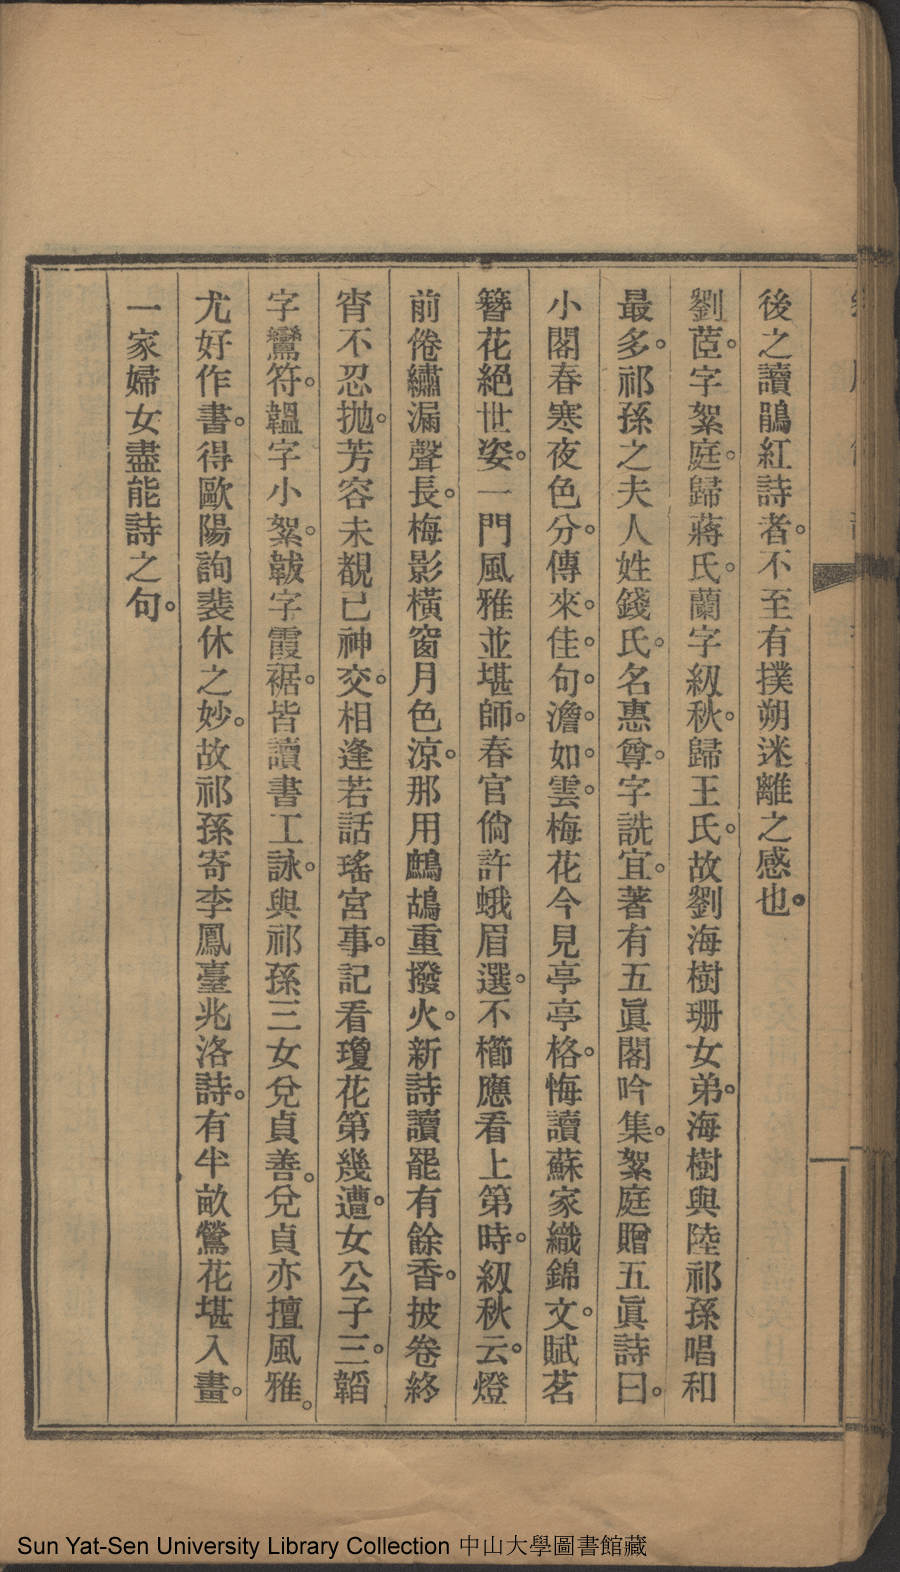 後之讀鵑紅詩者。不至有撲朔迷離之感也。
劉茝。字絮庭。歸蔣氏。蘭字紉秋。歸王氏。故劉海樹珊女弟。海樹與陸祁孫唱和
最多。祁孫之夫人姓錢氏。名惠尊。字詵宜。著有五眞閣吟集。絮庭贈五眞詩曰。
小閣春寒夜色分。傳來。佳。句。澹。如。雲。梅花今見亭亭格。悔讀蘇家織錦文。賦茗
簪花絕世姿。一門風雅並堪師。春官倘許蛾眉選。不櫛應看上第時。紉秋云。燈
前倦繡漏聲長。梅影橫窗月色涼。那用鷓鴣重撥火。新詩讀罷有餘香。披卷終
宵不忍拋。芳容未覩已神交。相逢若話瑤宮事。記看瓊花第幾遭。女公子三。韜
字鸞符。韞字小絮。韍字霞裾。皆讀書工詠。與祁孫三女兌貞善。兌貞亦擅風雅。
尤好作書。得歐陽詢裴休之妙。故祁孫寄李鳳臺兆洛詩。有半畝鶯花堪入畫。
一家婦女盡能詩之句。
Sun Yat-Sen University Library Collection 中山大學圖書館藏